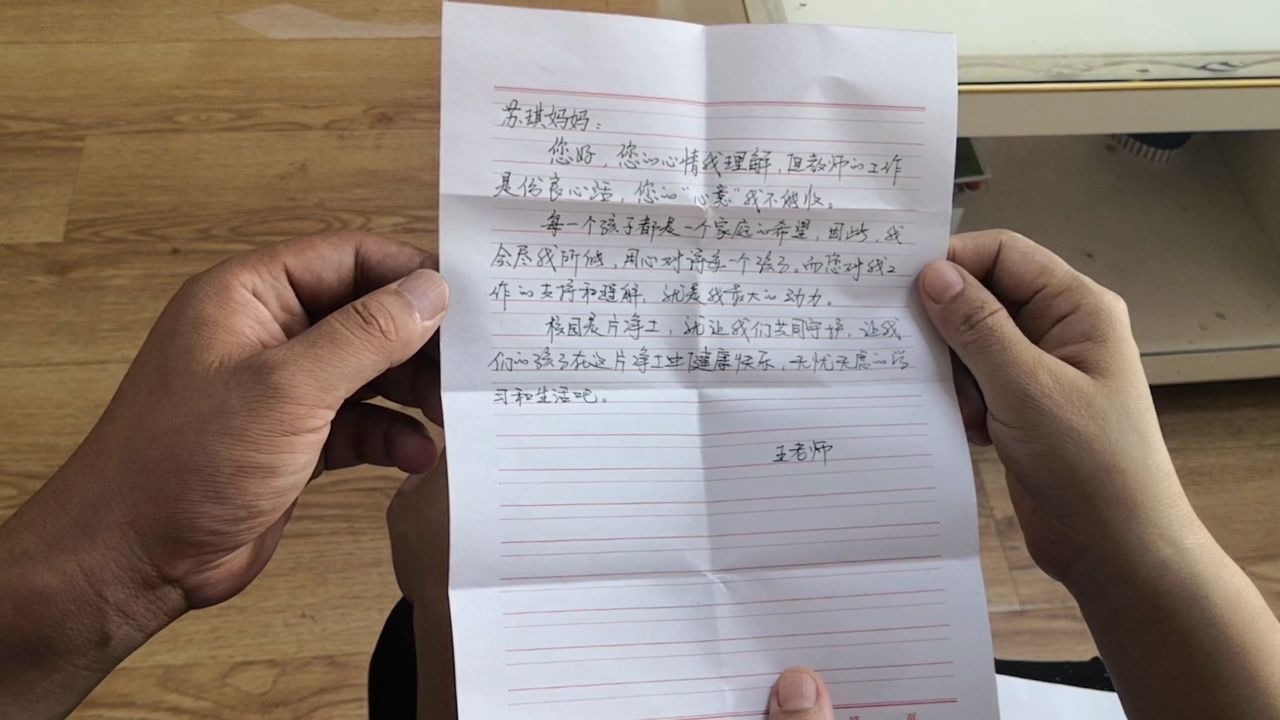 苏琪妈妈：
您好，您的心情我理解，但教师的工作
是份良心活，您的“心意”我不能收。
每一个孩子都是一个家庭的希望，因此，我
会尽我所能，用心对待每一个孩子。而您对我工
作的支持和理解，就是我最大的动力。
校园是片净土，就让我们共同守护，让我
们的孩子在这片净土里健康快乐，无忧无虑的学
习和生活吧。
王老师
第 页